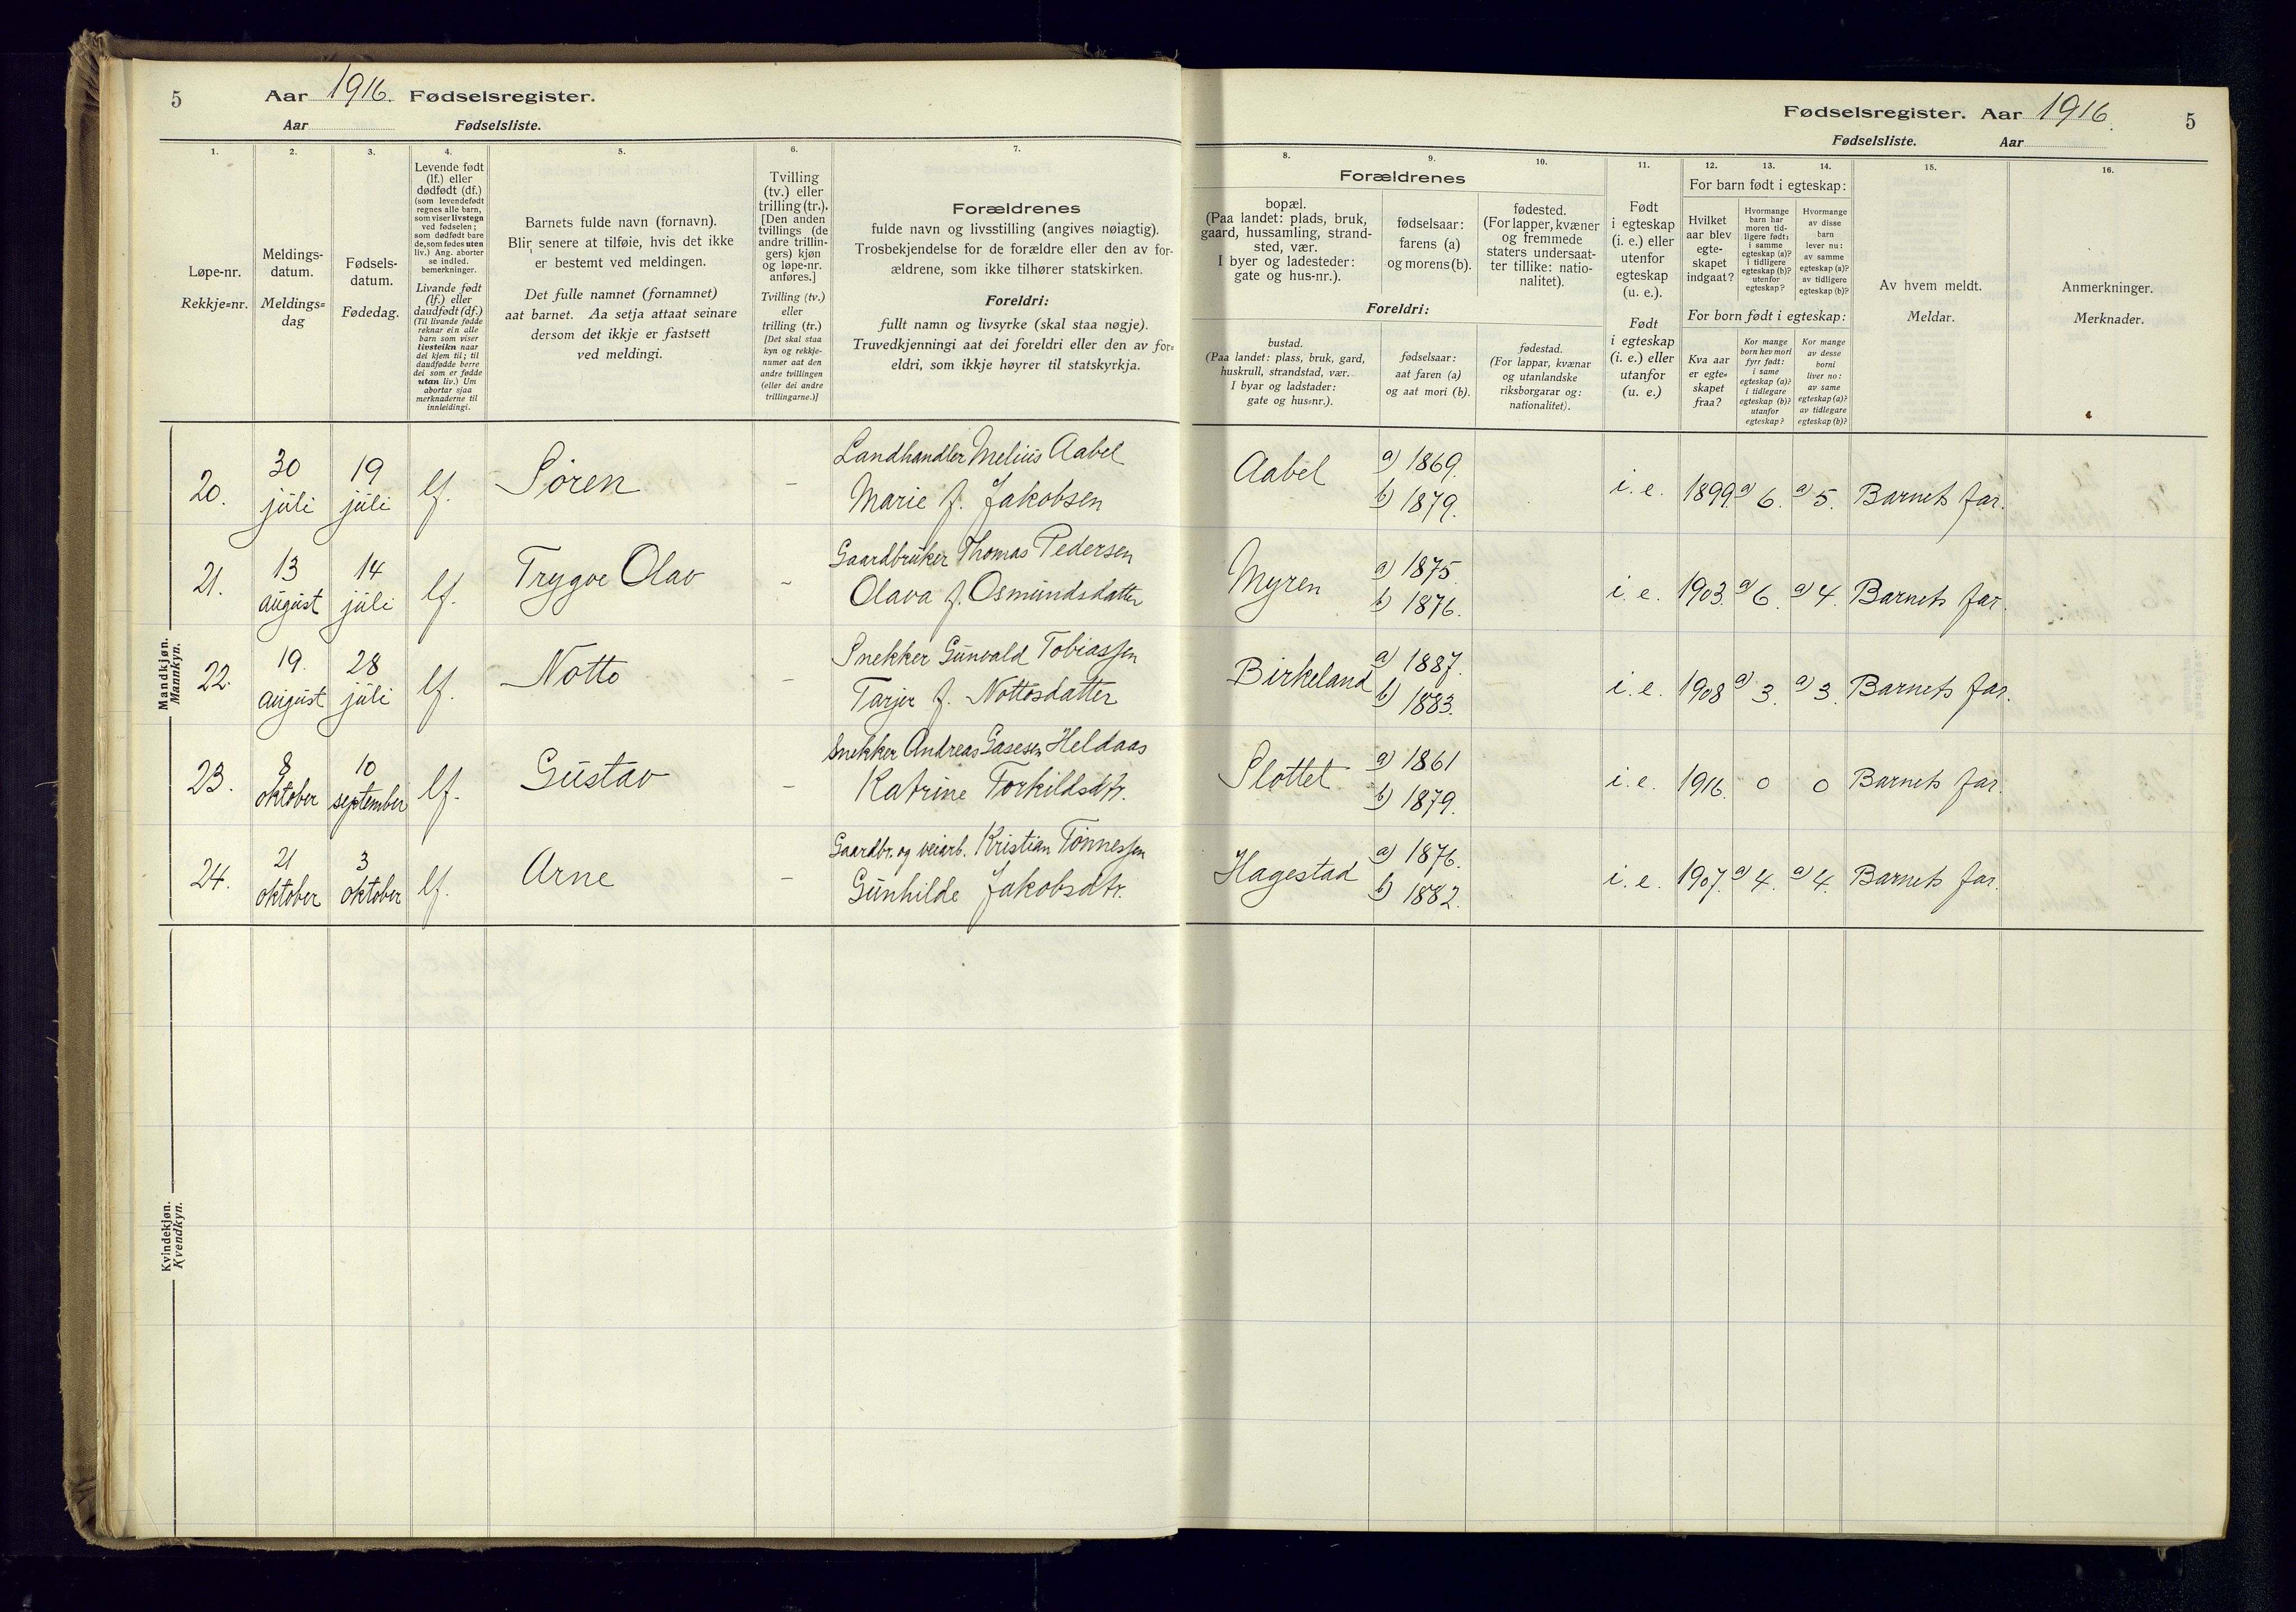 5
Aar 1916. Fødselsregister.
Aar Fødselsliste.
1.
2.
3.
4.
5.
6.
7.
Løpe-nr.
Rekkje=nr.
Meldings-
datum.
Meldings=
dag
Fødsels-
datum.
Fødedag.
Levende født
(lf.) eller
dødfødt (df.)
(som levendefødt
regnes alle barn,
som viser livstegn
ved fødselen;
som dødfødt bare
de, som fødes uten
liv.) Ang. aborter
se indled.
bemerkninger.
Livande fødd
(lf.) eller
daudfødt (df.)
(Til livande fødde
reknar ein alle
barn som viser
livsteikn naar
dei kjem til; til
daudfødde berre
dei som er fødde
utan liv.) Um
abortar sjaa
merknaderne til
innleidingi.
Barnets fulde navn (fornavn).
Blir senere at tilføie, hvis det ikke
er bestemt ved meldingen.
Det fulle namnet (fornamnet)
aat barnet. Aa setja attaat seinare
dersom det ikkje er fastsett
ved meldingi.
Tvilling
(tv.) eller
trilling (tr.).
[Den anden
tvillings (de
andre trillin-
gers) kjøn
og løpe-nr.
anføres.]
Tvilling (tv.)
eller
trilling (tr.)
[Det skal staa
kyn og rekkje-
numer aat den
andre tvillingen
(eller dei andre
trillingarne.)]
Forældrenes
fulde navn og livsstilling (angives nøiagtig).
Trosbekjendelse for de forældre eller den av for-
ældrene, som ikke tilhører statskirken.
Foreldri:
fullt namn og livsyrke (skal staa nøgje).
Truvedkjenningi aat dei foreldri eller den av for=
eldri, som ikkje høyrer til statskyrkja.
Mandkjøn.
Mannkyn.
20. 30 juli 19 juli lf. Søren - Landhandler Melius Aabel
Marie f. Jakobsen
21. 13 august 14 juli lf. Trygve Olav - Gaardbruker Thomas Pedersen
Olava f. Osmundsdatter
22. 19. august 28 juli lf. Notto - Snekker Gunvald Tobiassen
Tarjer f. Nottosdatter
23. 8 oktober 10 september lf. Gustav - Snekker Andreas Gasesen Heldaas
Katrine Torkildsdtr.
24. 21 oktober 3 oktober lf. Arne - Gaardbr. og veiarb. Kristian Tønnessen
Gunhilde Jakobsdtr.
Kvindekjøn.
Kvendkyn.
Fødselsregister. Aar 1916.
5
Fødselsliste. Aar
8.
9.
10.
11.
12.
13.
14.
15.
16.
Forældrenes
bopæl.
(Paa landet: plads, bruk,
gaard, hussamling, strand-
sted, vær.
I byer og ladesteder:
gate og hus-nr.).
fødselsaar:
farens (a)
og morens (b).
fødested.
(For lapper, kvæner
og fremmede
staters undersaat-
ter tillike: natio-
nalitet).
Foreldri:
bustad.
(Paa landet: plass, bruk, gard,
huskrull, strandstad, vær.
I byar og ladstader:
gate og hus=nr.).
fødselsaar:
aat faren (a)
og aat mori (b).
fødestad.
(For lappar, kvænar
og utanlandske
riksborgarar og:
nationalitet).
Født
i egteskap
(i. e.) eller
utenfor
egteskap
(u. e.).
Født
i egteskap
(i. e.) eller
utanfor
(u. e.)
For barn født i egteskap:
Hvilket
aar blev
egte-
skapet
indgaat?
Hvormange
barn har
moren tid-
ligere født:
i samme
egteskap (a)?
i tidligere
egteskap (b)?
utenfor
egteskap?
Hvormange
av disse
barn
lever nu:
av samme
egteskap (a)?
av tidligere
egteskap (b)?
For born født i egteskap:
Kva aar
er egte=
skapet
fraa?
Kor mange
born hev mori
fyrr født:
i same
egteskap (a)?
i tidlegare
egteskap (b)?
utanfor
egteskap?
Kor mange
av desse
borni
liver no:
av same
egteskap (a)?
av tidlegare
egteskap (b)?
Av hvem meldt.
Meldar.
Anmerkninger.
Merknader.
Aabel a) 1869. b) 1879. i. e. 1899. a) 6. a) 5. Barnets far.
Myren a) 1875. b) 1876. i. e. 1903. a) 6. a) 4. Barnets far.
Birkeland a) 1887. b) 1883. i. e. 1908 a) 3. a) 3. Barnets far.
Slottet a) 1861 b) 1879. i. e. 1916. 0 0 Barnets far.
Hagestad a) 1876. b) 1882. i. e. 1907. a) 4. a) 4. Barnets far.